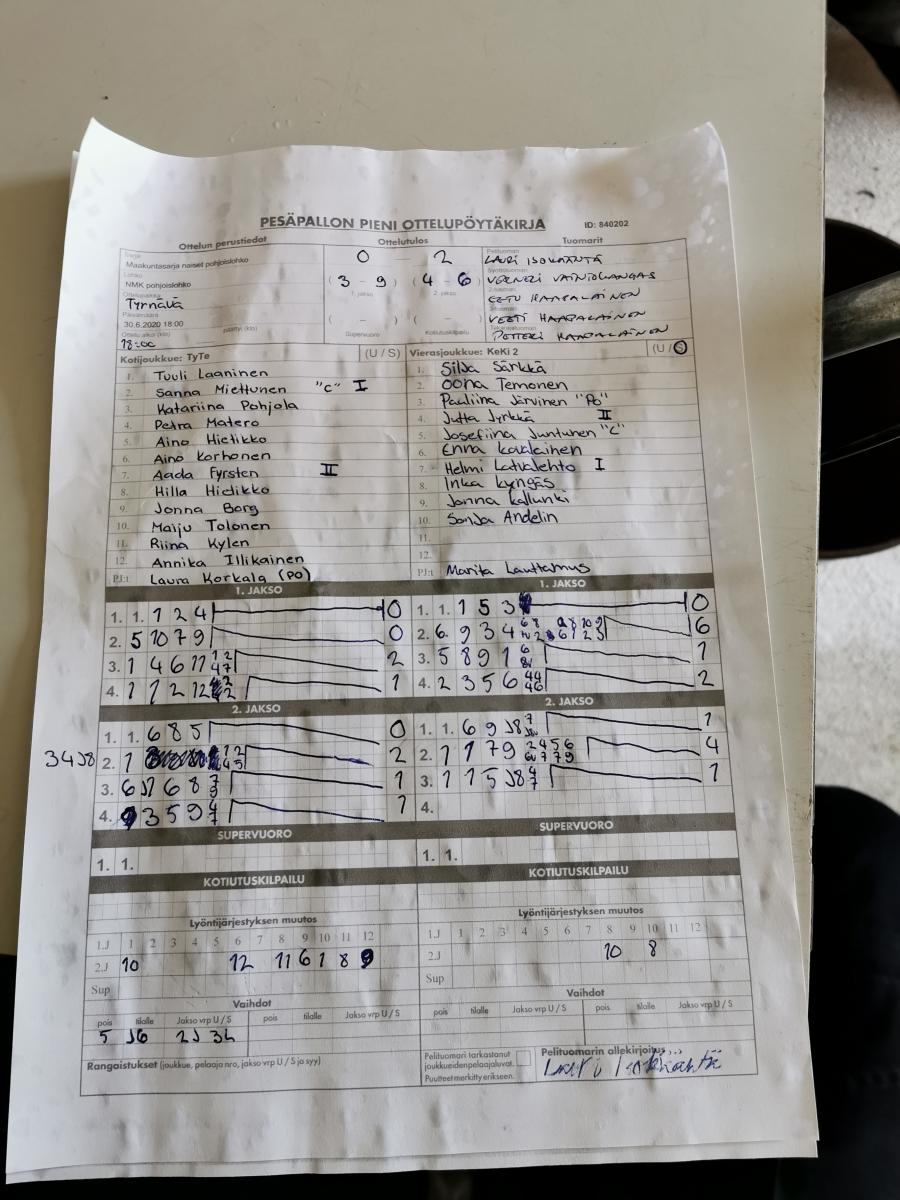 PESÄPALLON PIENI OTTELUPÖYTÄKIRJA ID: 840202
Ottelun perustiedot Ottelutulos Tuomarit
Sarja
Maakuntasarja naiset pohjoislohko
Lohko
NMK pohjoislohko
Ottelupaikka
Tyrnävä
Päivämäärä
30.6.2020 18:00
Ottelu alkoi (klo) päättyi (klo)
18:00
0 - 2
(3 - 9) (4 - 6)
1. jakso 2. jakso
( - ) ( - )
Supervuoro Kotiutuskilpailu
Pelituomari
LAURI ISOKÄÄNTÄ
Syöttötuomari
VEERNELI VAINIOKANGAS
2-tuomari
EETU HAAPALAINEN
3-tuomari
VEETI HAAPALAINEN
Takarajatuomari
PETTERI HAAPALAINEN
Kotijoukkue: TyTe (U / S)
1. Tuuli Laaninen
2. Sanna Miettunen "C" I
3. Katariina Pohjola
4. Petra Matero
5. Aino Hietikko
6. Aino Korhonen
7. Aada Fyrsten II
8. Hilla Hietikko
9. Jonna Borg
10. Maiju Tolonen
11. Riina Kylen
12. Annika Illikainen
PJ:t Laura Korkala (PO)
Vierasjoukkue: KeKi 2 (U / S)
1. Silja Särkkä
2. Oona Temonen
3. Pauliina Järvinen "Po"
4. Jutta Jyrkkä II
5. Josefiina Juntunen "C"
6. Enna Kovalainen
7. Helmi Latvalehto I
8. Inka Kyngäs
9. Jonna Kallunki
10. Sonja Andelin
11.
12.
PJ:t Marita Lauttamus
1. JAKSO
1. 1. 1 2 4 0
2. 5 10 7 9 0
3. 1 4 6 11 12 47 2
4. 1 1 2 12 1
2. JAKSO
1. 1. 6 8 5 0
34J8 2. 1 12 45 2
3. 6 J1 6 8 7 9 1
4. 3 5 9 4 7 1
SUPERVUORO
1. 1.
KOTIUTUSKILPAILU
1. JAKSO
1. 1. 1 5 3 0
2. 6. 9 3 4 6
3. 5 8 9 1 1
4. 2 3 5 6 44 46 2
2. JAKSO
1. 1. 6 9 J8 7 1
2. 1 1 7 9 2456 6779 4
3. 1 1 5 J8 4 7 1
4.
SUPERVUORO
1. 1.
KOTIUTUSKILPAILU
Lyöntijärjestyksen muutos
1.J 1 2 3 4 5 6 7 8 9 10 11 12
2.J 10 12 11 6 1 8 9
Sup
Vaihdot
pois tilalle Jakso vrp U / S pois tilalle Jakso vrp U / S
5 J6 2J 3L
Rangaistukset (joukkue, pelaaja nro, jakso vrp U / S ja syy)
Lyöntijärjestyksen muutos
1.J 1 2 3 4 5 6 7 8 9 10 11 12
2.J 10 8
Sup
Vaihdot
pois tilalle Jakso vrp U / S pois tilalle Jakso vrp U / S
Pelituomari tarkastanut
joukkueidenpelaajaluvat.
Puutteet merkitty erikseen.
Pelituomarin allekirjoitus
Lauri Isokääntä